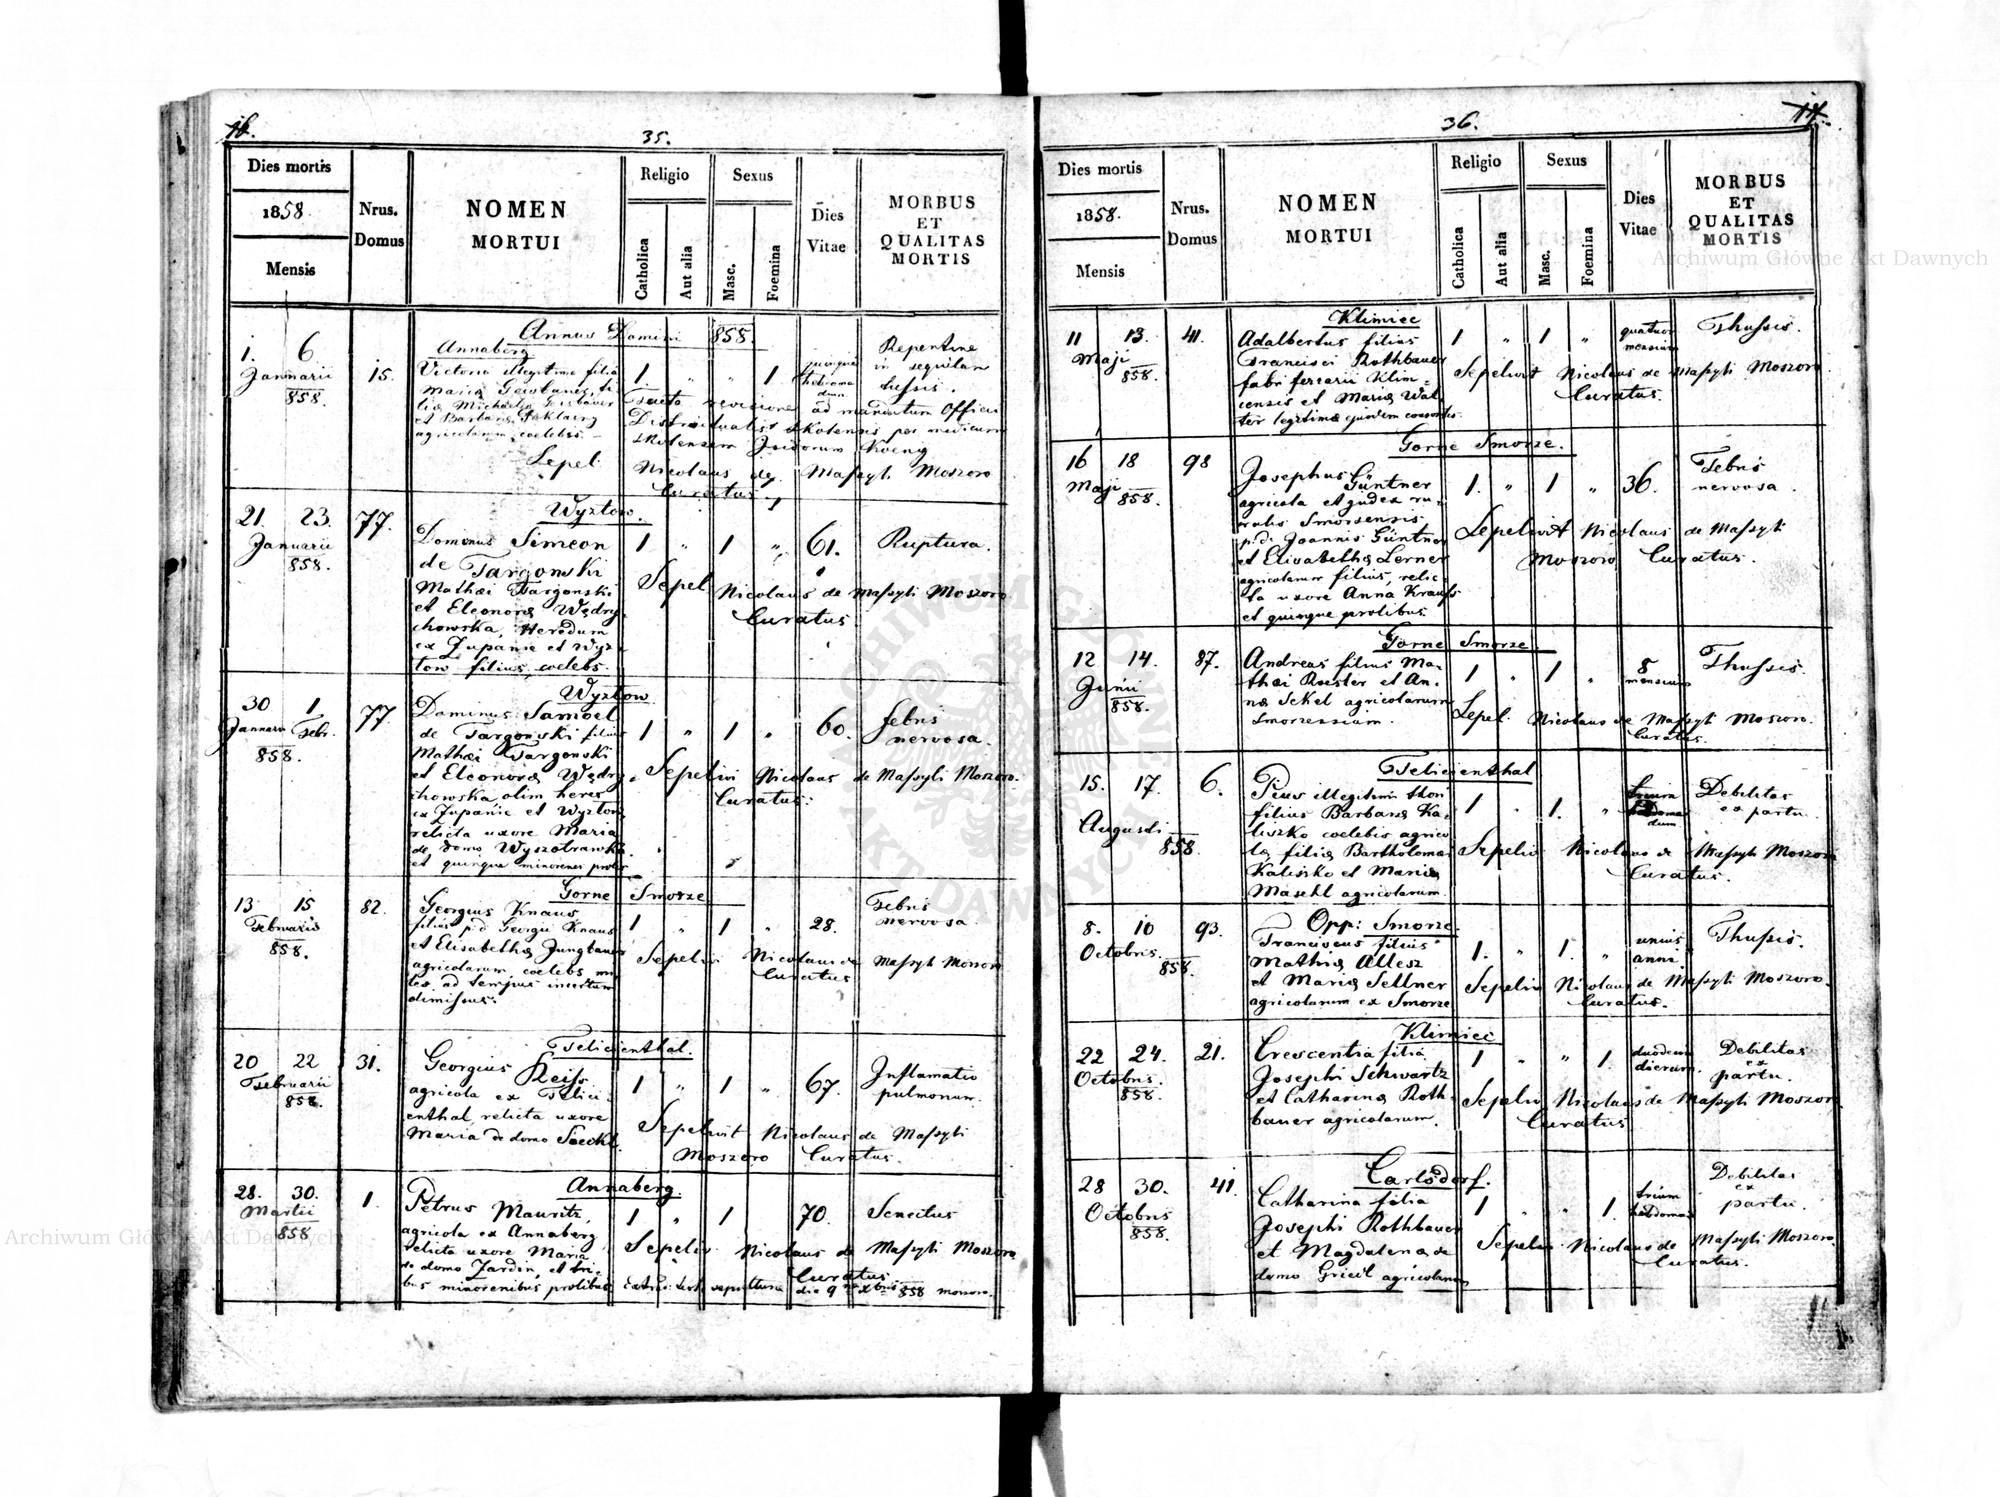 16.
35.
Dies mortis
1858.
Mensis
Nrus.
Domus
NOMEN
MORTUI
Religio
Catholica
Aut alia
Sexus
Masc.
Foemina
Dies
Vitae
MORBUS
ET
QUALITAS
MORTIS
Annus Domini 858.
Annaberg
1. 6.
Januarii
858.
15.
Victoria illegitima filia
agricolarum, coelebs.
Sepel.
1 " " 1
Repentine
in sequelam
tussis.
Facta revisione ad mandatum Officii
Districtualis Skolensis per medicum
Skolensem Isidorum Koenig
Nicolaus de Maſsyli Moszoro
Curatus
Wyztow.
21. 23.
Januarii
858.
77.
Dominus Simeon
de Targonski
Mathæi Targonski
et Eleonoræ Wędry
chowska, Heredum
ex Zupanie et Wyz-
tow filius, coelebs.
1 " 1 " 61.
Ruptura.
Sepel Nicolaus de Maſsyli Moszoro
Curatus.
Wyztow
30 1.
Januarii Febr.
858.
77
Dominus Samoel
de Targonski filius
Mathæi Targonski
et Eleonoræ Wędry
chowska olim heres
ex Zupanie et Wyztow,
relicta uxore Maria
de domo Wyszotrawka
et quinque minorenes proles
1 " 1 " 60.
febris
nervosa.
Sepelivi Nicolaus de Maſsyli Moszoro.
Curatus.
Gorne Smorze
13 15
Februarii
858.
82.
Georgius Knaus
filius p.d. Georgii Knaus
et Elisabethæ Jungbauer
agricolarum, coelebs mi-
les ad tempus incertum
dimiſsus.
1 " 1 " 28.
Febris
nervosa.
Sepelivi Nicolaus de Maſsyli Moszoro
Curatus
Felicienthal.
20 22
Februarii
858.
31.
Georgius
Reiſs
agricola ex Felici-
enthal, relicta uxore
Maria de domo Stockl.
1 " 1 " 67.
Inflamatio
pulmonum.
Sepelivit Nicolaus de Maſsyli
Moszoro Curatus.
Annaberg.
28. 30.
Martii
858
1.
Petrus Mauritz,
agricola ex Annaberg
relicta uxore Maria
de domo Jardin, et tri-
bus minorenibus prolibus
1 " 1 70.
Senectus
Sepeliv. Nicolaus de Maſsyli Moszoro
Curatus
36.
17.
Dies mortis
1858.
Mensis
Nrus.
Domus
NOMEN
MORTUI
Religio
Catholica
Aut alia
Sexus
Masc.
Foemina
Dies
Vitae
MORBUS
ET
QUALITAS
MORTIS
Klimiec
11 13.
Maji
858.
41.
Adalbertus filius
Francisci Rothbauer
fabri ferrarii Klim-
censis et Mariæ Wal-
ter legitimæ ejusdem consortis.
1 " 1 "
quatuor
mensium
Thuſsis.
Sepelivit Nicolaus de Maſsyli Moszoro.
Curatus.
Gorne Smorze.
16 18
Maji
858.
98
Josephus Güntner
agricola et judex ru-
ralis Smorsensis
p.d. Joannis Güntner
et Elisabethæ Lerner
agricolarum filius, relic-
ta uxore Anna Krauſs
et quinque prolibus
1. " 1 " 36.
Febris
nervosa.
Sepelivit Nicolaus de Maſsyli
Moszoro Curatus.
Gorne Smorze.
12 14.
Junii
858.
87.
Andreas filius Ma-
thæi Riester et An-
næ Sckel agricolarum
Smorzessium.
1 " 1 "
8
mensium
Thuſsis.
Sepel. Nicolaus de Maſsyli Moszoro.
Curatus.
Felicienthal
15. 17.
Augusti
858.
6.
Pius illegitimi thori
filius Barbaræ Ka-
liszko coelebis agrico-
læ filiæ Bartholomæi
Kaliszko et Mariæ
Maschl agricolarum.
1 " 1. "
trium
hebdoma
dum
Debilitas
ex partu.
Sepeliv. Nicolaus de Maſsyli Moszoro
Curatus.
Opp: Smorze.
8. 10
Octobris.
858.
93.
Franciscus filius
Mathiæ Allesz
et Mariæ Sellner
agricolarum ex Smorze
1. " 1. "
unius
anni.
Thuſsis.
Sepeliv. Nicolaus de Maſsyli Moszoro.
Curatus.
Klimiec
22 24.
Octobris.
858.
21.
Crescentia filia
Josephi Schwartz
et Catharinæ Roth-
bauer agricolarum.
1 " " 1.
duodecim
dierum.
Debilitas
ex
partu.
Sepeliv. Nicolaus de Maſsyli Moszoro.
Curatus
Carlsdorf.
28 30.
Octobris
858.
41.
Catharina filia
Josephi Rothbauer
et Magdalenæ de
domo Griedl agricolarum
1 " " 1.
trium
hebdomad
Debilitas
ex
partu.
Sepeliv. Nicolaus de Maſsyli Moszoro.
Curatus.
Archiwum Główne Akt Dawnych
Archiwum Główne Akt Dawnych
ARCHIWUM GŁÓWNE AKT DAWNYCH